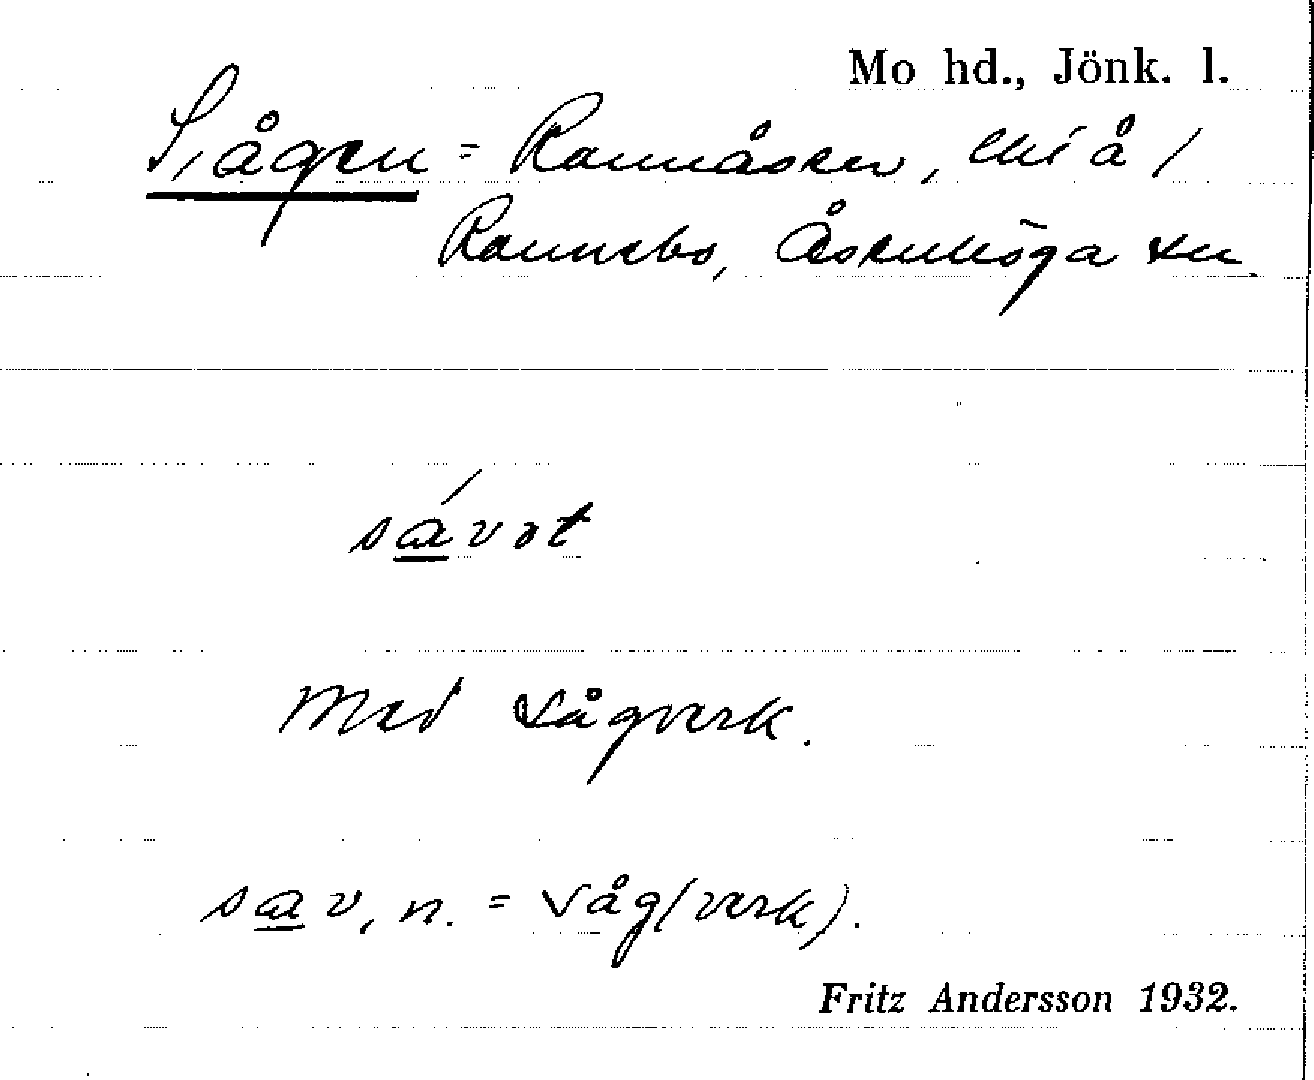 Mo hd., Jönk. l.
Sågen = Rannåsen, del å
Rannebo, Åsenhöga sn
såvət
Med sågverk.
sav, n. = såg(verk).
Fritz Andersson 1932.